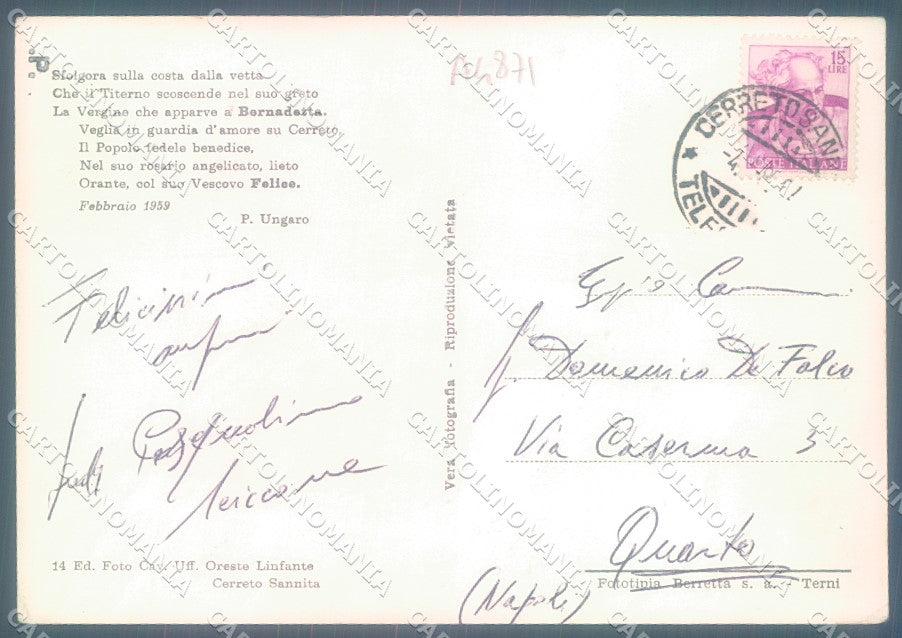 Sfolgora sulla costa dalla vetta
Che il Titerno scoscende nel suo greto
La Vergine che apparve a Bernadetta.
Veglia in guardia d'amore su Cerreto
Il Popolo fedele benedice,
Nel suo rosario angelicato, lieto
Orante, col suo Vescovo Felice.
Febbraio 1959
P. Ungaro
Felicissimi
auguri
Pasqualino
14 Ed. Foto Cav. Uff. Oreste Linfante
Cerreto Sannita
Vera Fotografia - Riproduzione vietata
871
15
LIRE
POSTE ITALIANE
CERRETO SAN
TELE
Domenico De Falco
Via Caserma 3
Quarto
(Napoli)
Fototipia Berretta s. a. - Terni
CARTOLINOMANIA